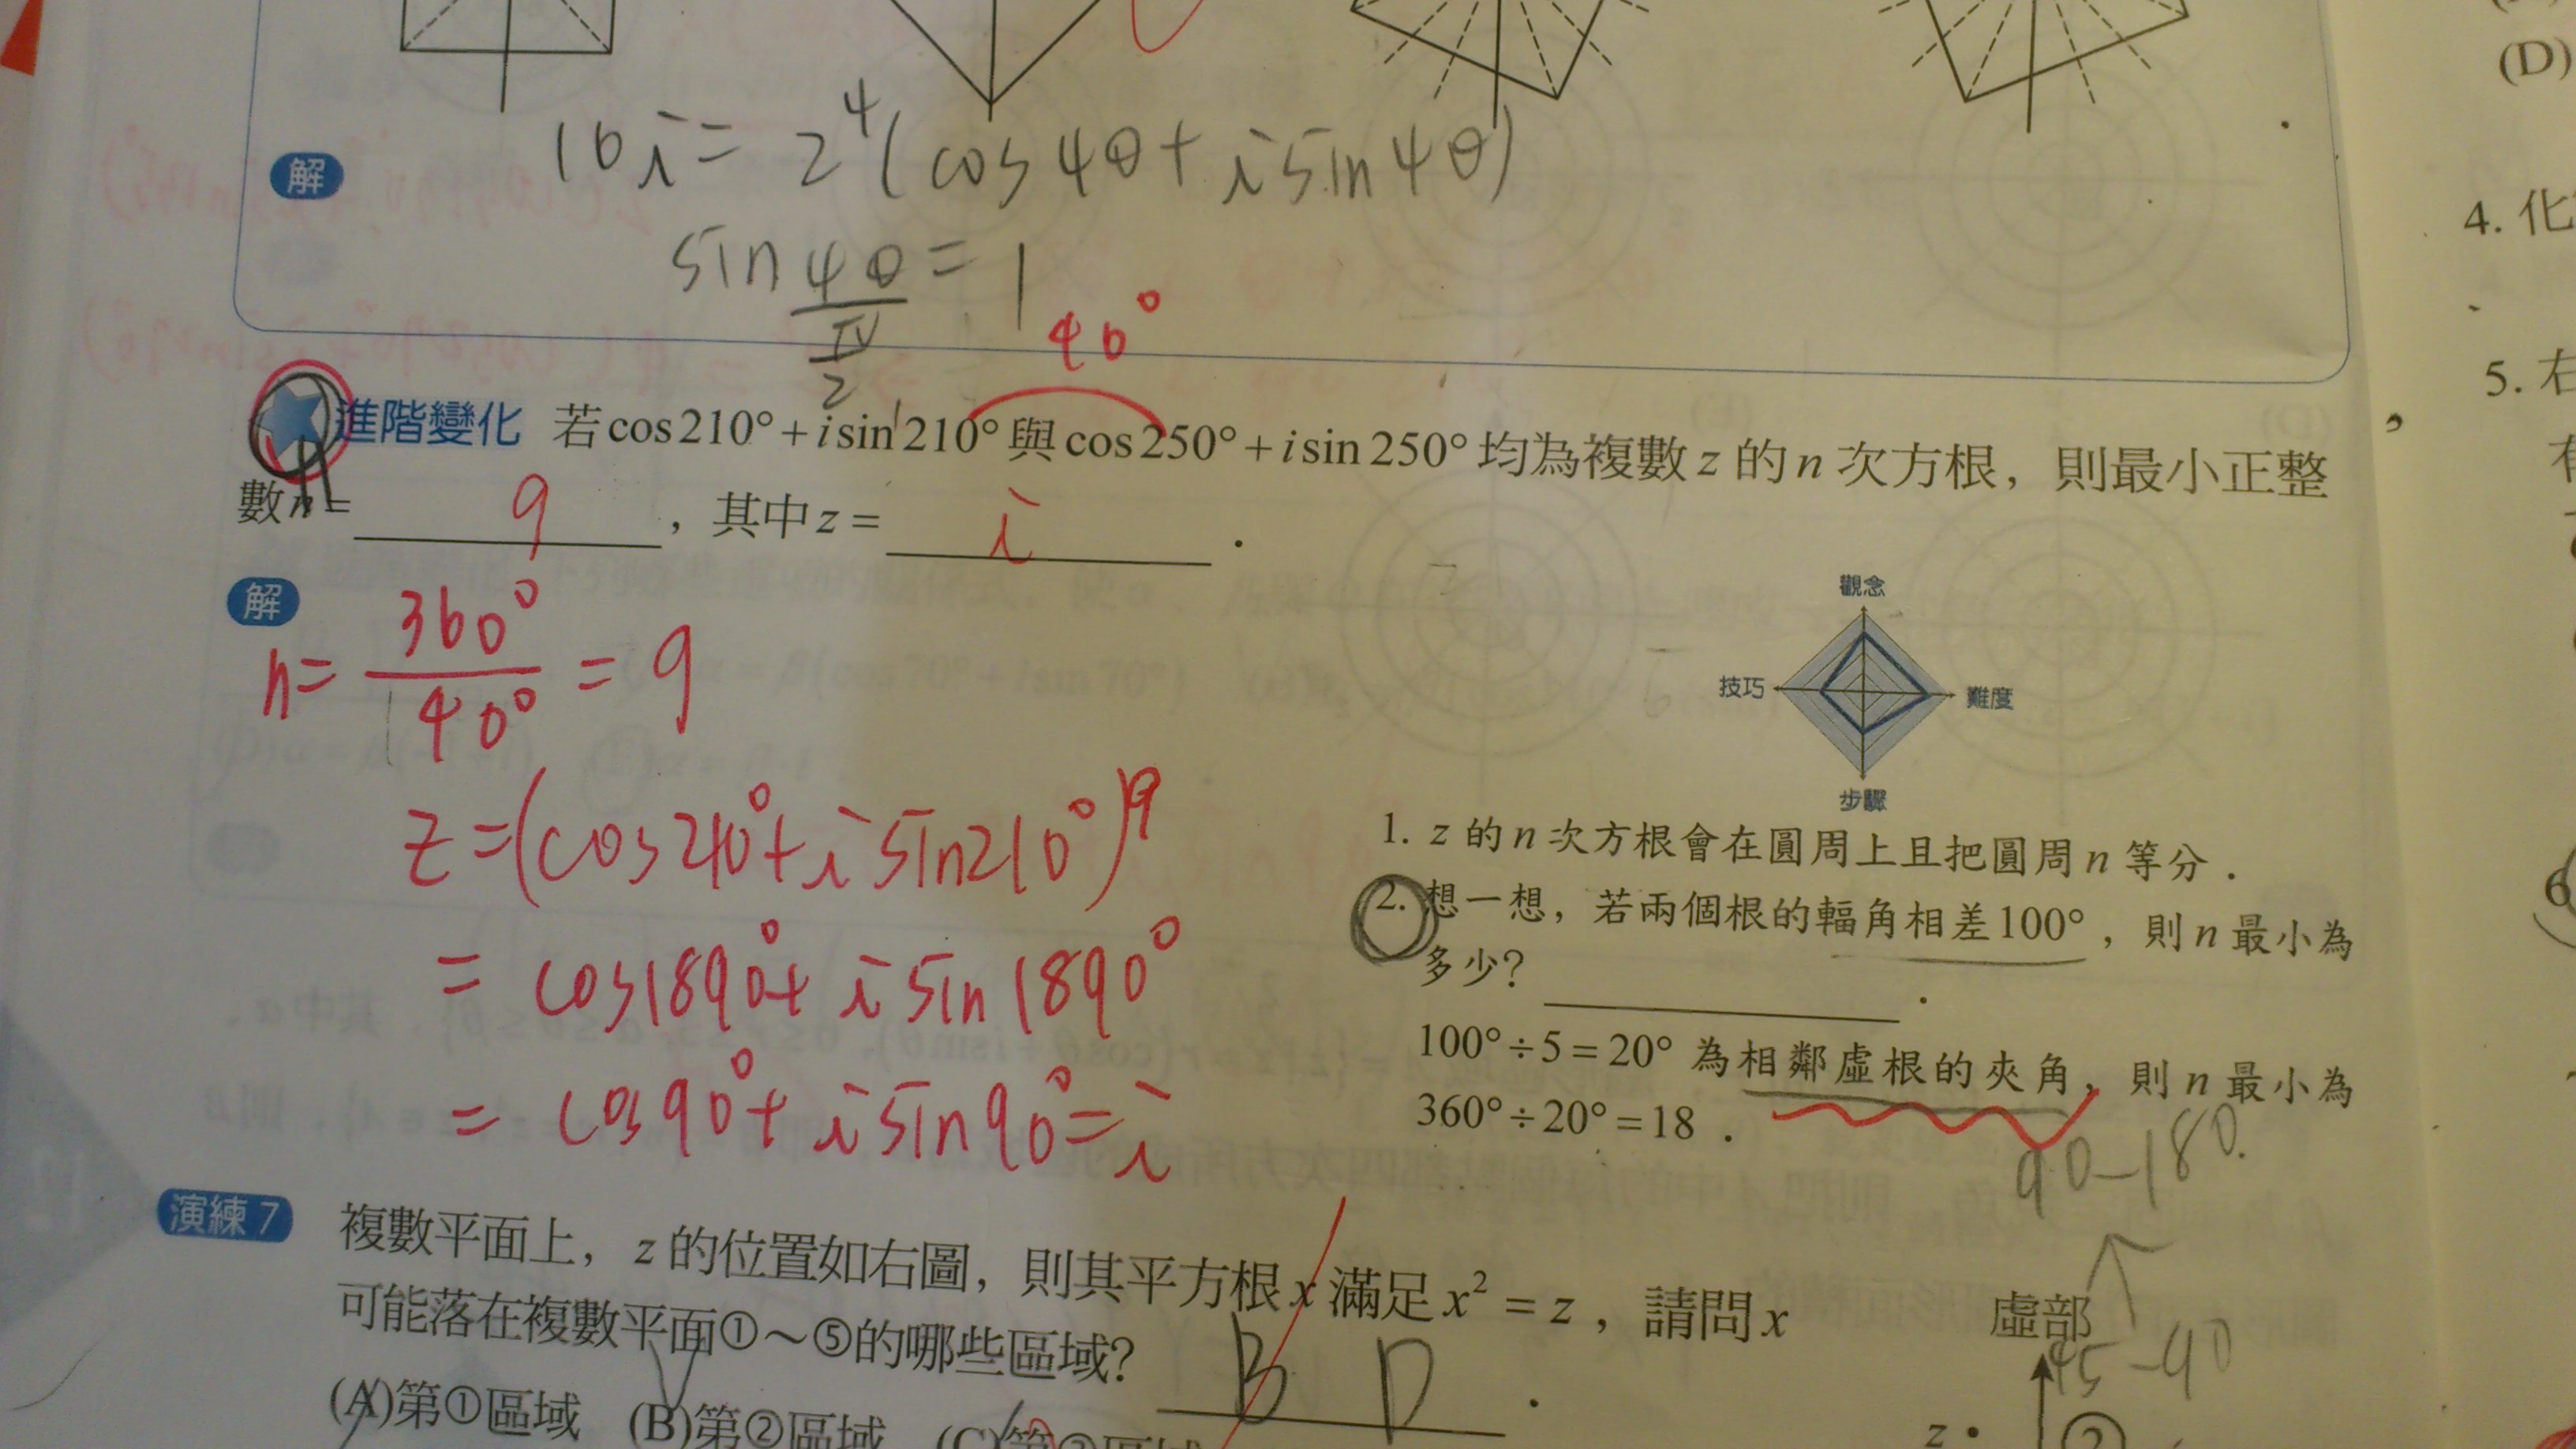 (D)
解
16i = 2⁴(cos4θ + i sin4θ)
sin 4θ = 1
π/2
40°
4. 化
5. 右
進階變化 若cos210°+isin210°與cos250°+isin250°均為複數z的n次方根，則最小正整
數n= 9 ，其中z= i ．
解
n = 360°/40° = 9
z = (cos210° + i sin210°)⁹
= cos1890° + i sin1890°
= cos90° + i sin90° = i
觀念
技巧
難度
步驟
1. z的n次方根會在圓周上且把圓周n等分．
2. 想一想，若兩個根的輻角相差100°，則n最小為
多少？
100°÷5=20° 為相鄰虛根的夾角，則n最小為
360°÷20°=18．
90-180
演練7 複數平面上，z的位置如右圖，則其平方根x滿足x²=z，請問x
可能落在複數平面①～⑤的哪些區域？ B D ．
虛部
45-90
(A)第①區域 (B)第②區域 (C)第③區域
z
②
6